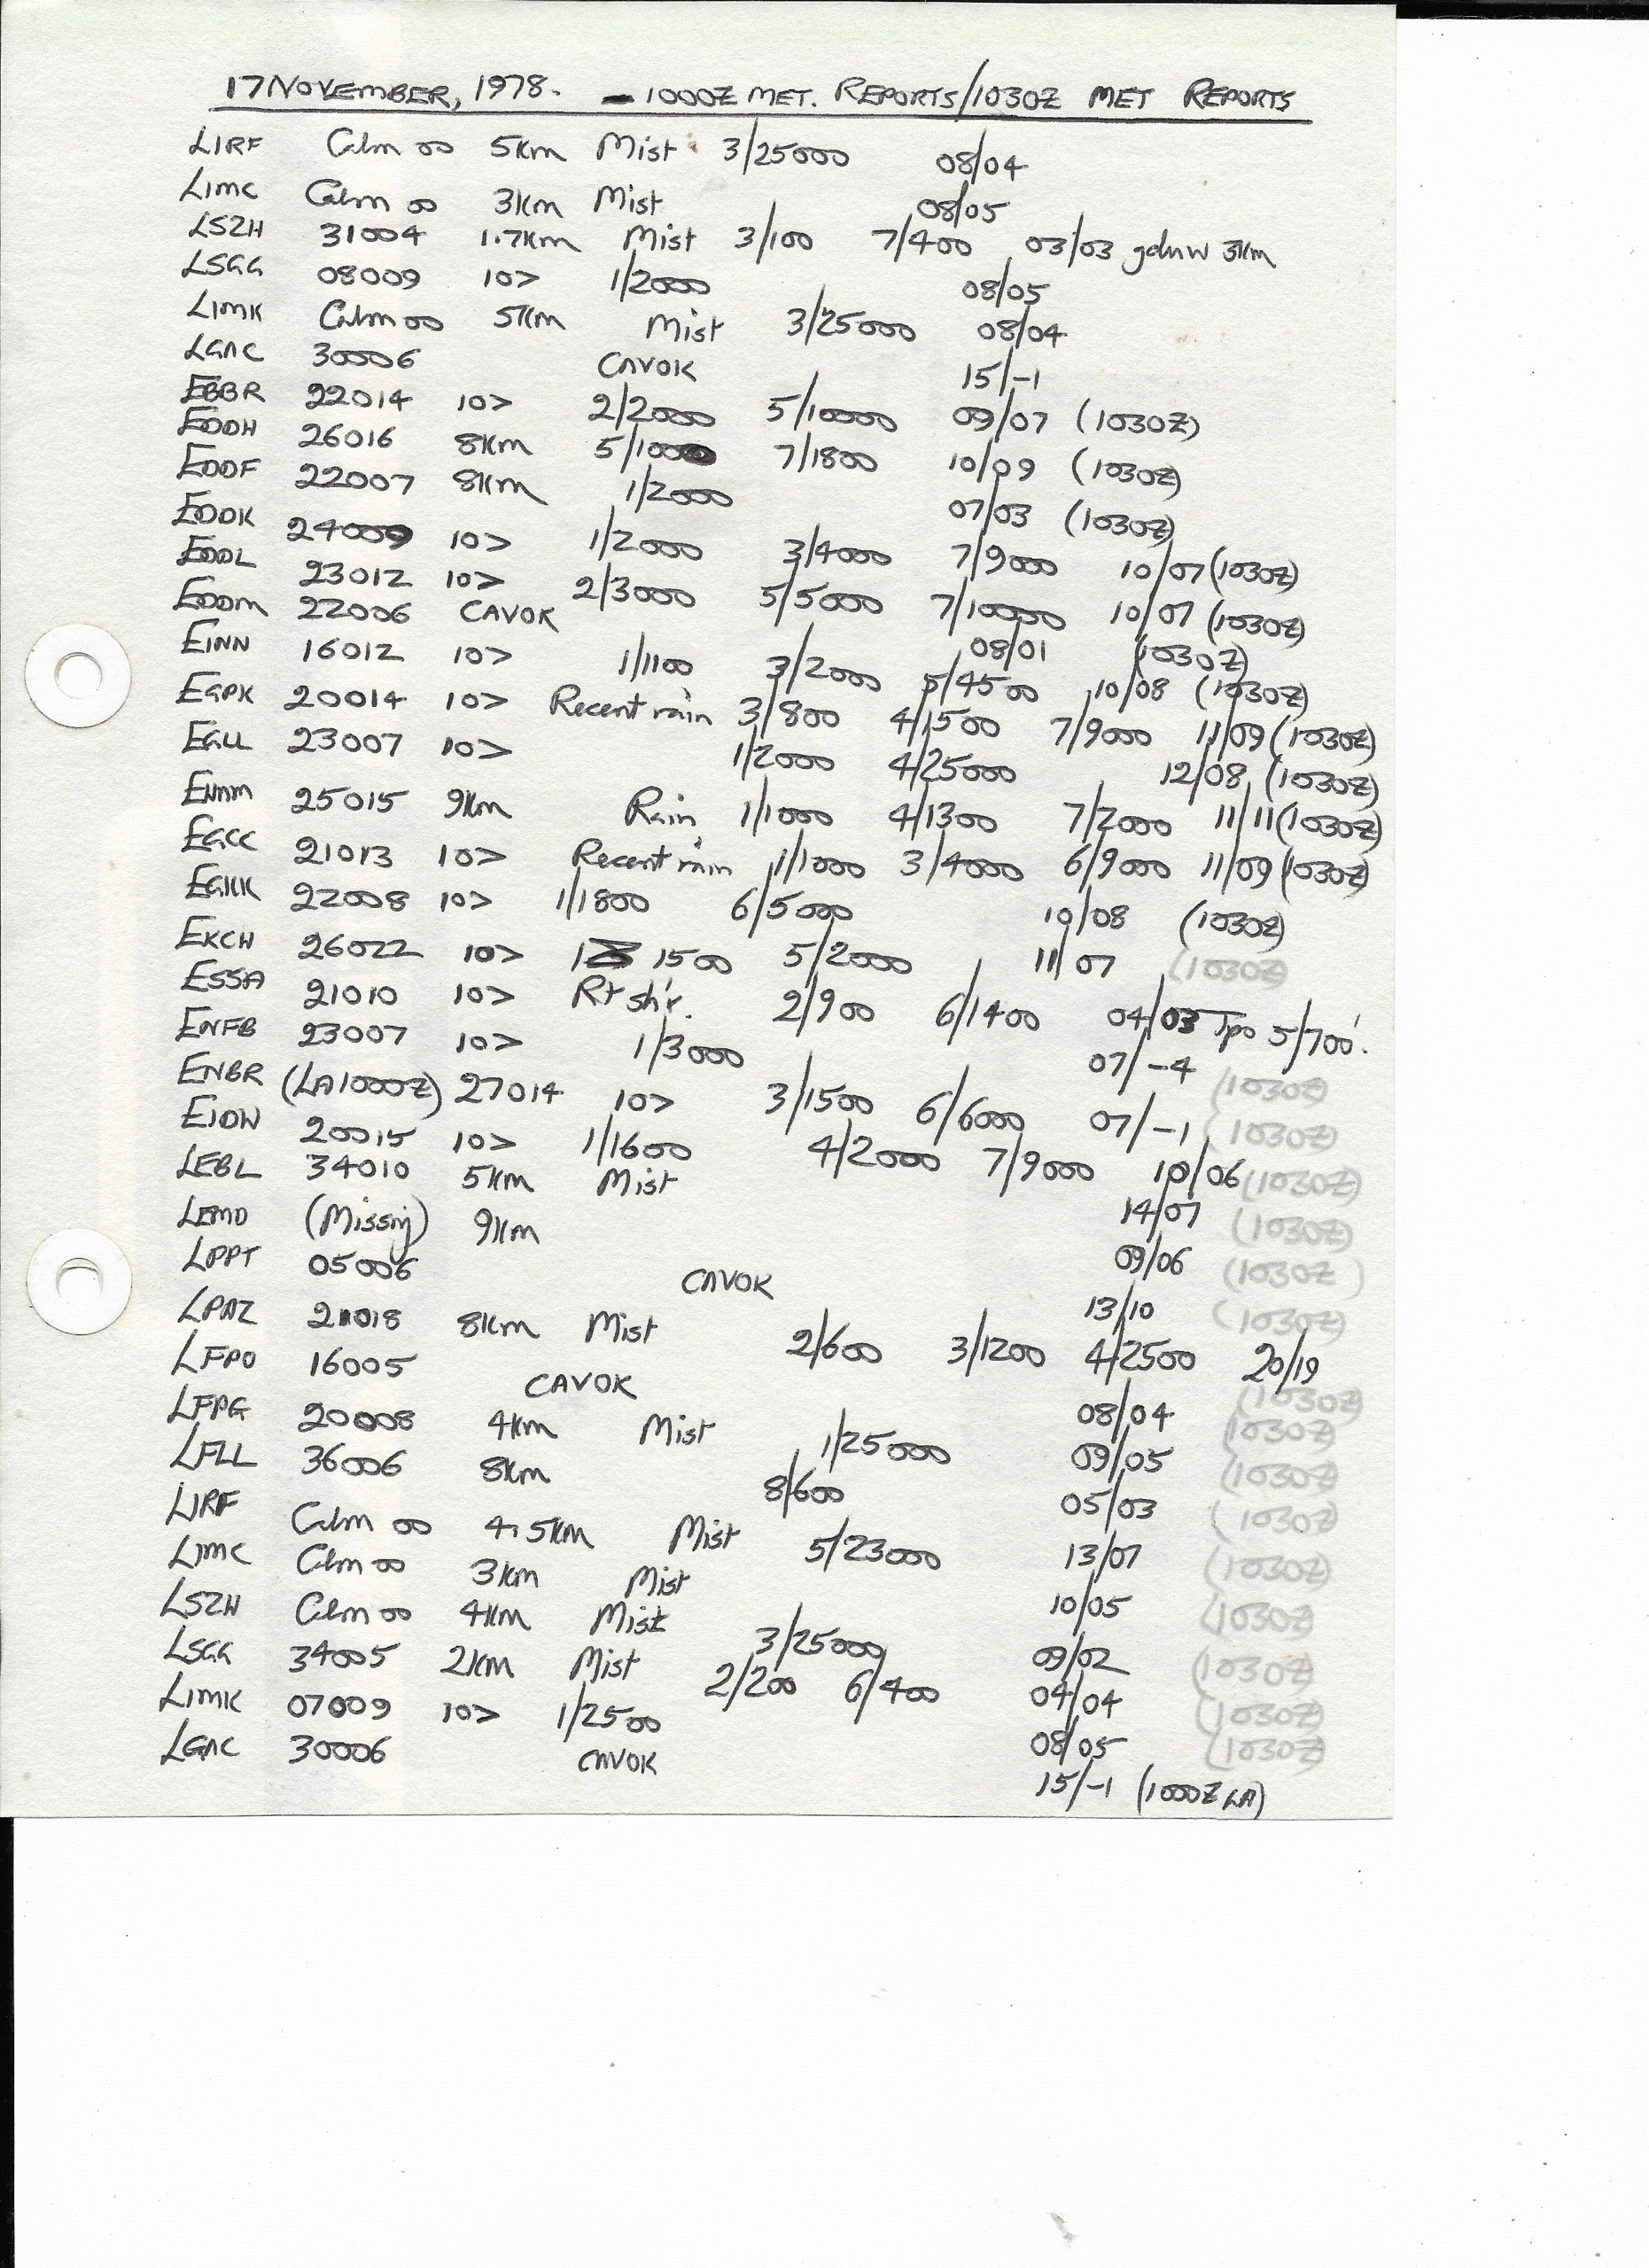 17 NOVEMBER, 1978. - 1000Z MET. REPORTS/1030Z MET REPORTS
LIRF Calm 00 5Km Mist 3/25000 08/04
LIMC Calm 00 3Km Mist 08/05
LSZH 31004 1.7Km Mist 3/100 7/400 03/03 gdnw 3Km
LSGG 08009 10> 1/2000 08/05
LIMK Calm 00 5Km Mist 3/25000 08/04
LGAC 30006 CAVOK 15/-1
EBBR 22014 10> 2/2000 5/10000 09/07 (1030Z)
EDDH 26016 8Km 5/1000 7/1800 10/09 (1030Z)
EDDF 22007 8Km 1/2000 07/03 (1030Z)
EDDK 24009 10> 1/2000 3/4000 7/9000 10/07 (1030Z)
EDDL 23012 10> 2/3000 5/5000 7/10000 10/07 (1030Z)
EDDM 22006 CAVOK 08/01 (1030Z)
EINN 16012 10> 1/1100 3/2000 5/4500 10/08 (1030Z)
EGPK 20014 10> Recent rain 3/800 4/1500 7/9000 11/09 (1030Z)
EGLL 23007 10> 1/2000 4/25000 12/08 (1030Z)
25015 9Km Rain 1/1000 4/1300 7/2000 11/11 (1030Z)
EGCC 21013 10> Recent rain 1/1000 3/4000 6/9000 11/09 (1030Z)
EGKK 22008 10> 1/1800 6/5000 10/08 (1030Z)
EKCH 26022 10> 1 1500 5/2000 11/07 (1030Z)
ESSA 21010 10> R+ sh'r. 2/900 6/1400 04/03 Tpo 5/700'.
ENFB 23007 10> 1/3000 07/-4 (1030Z)
ENBR (LA1000Z) 27014 10> 3/1500 6/6000 07/-1 (1030Z)
EIDW 20015 10> 1/1600 4/2000 7/9000 10/06 (1030Z)
LEBL 34010 5Km Mist 14/07 (1030Z)
LEMD (Missing) 9Km 09/06 (1030Z)
LPPT 05006 CAVOK 13/10 (1030Z)
LPAZ 21018 8Km Mist 2/600 3/1200 4/2500 20/19 (1030Z)
LFPO 16005 CAVOK 08/04 (1030Z)
LFPG 20008 4Km Mist 1/25000 09/05 (1030Z)
LFLL 36006 8Km 8/600 05/03 (1030Z)
LIRF Calm 00 4.5Km Mist 5/23000 13/07 (1030Z)
LIMC Calm 00 3Km Mist 10/05 (1030Z)
LSZH Calm 00 4Km Mist 3/25000 09/02 (1030Z)
LSGG 34005 2Km Mist 2/200 6/400 04/04 (1030Z)
LIMK 07009 10> 1/2500 08/05 (1030Z)
LGAC 30006 CAVOK 15/-1 (1000Z LA)